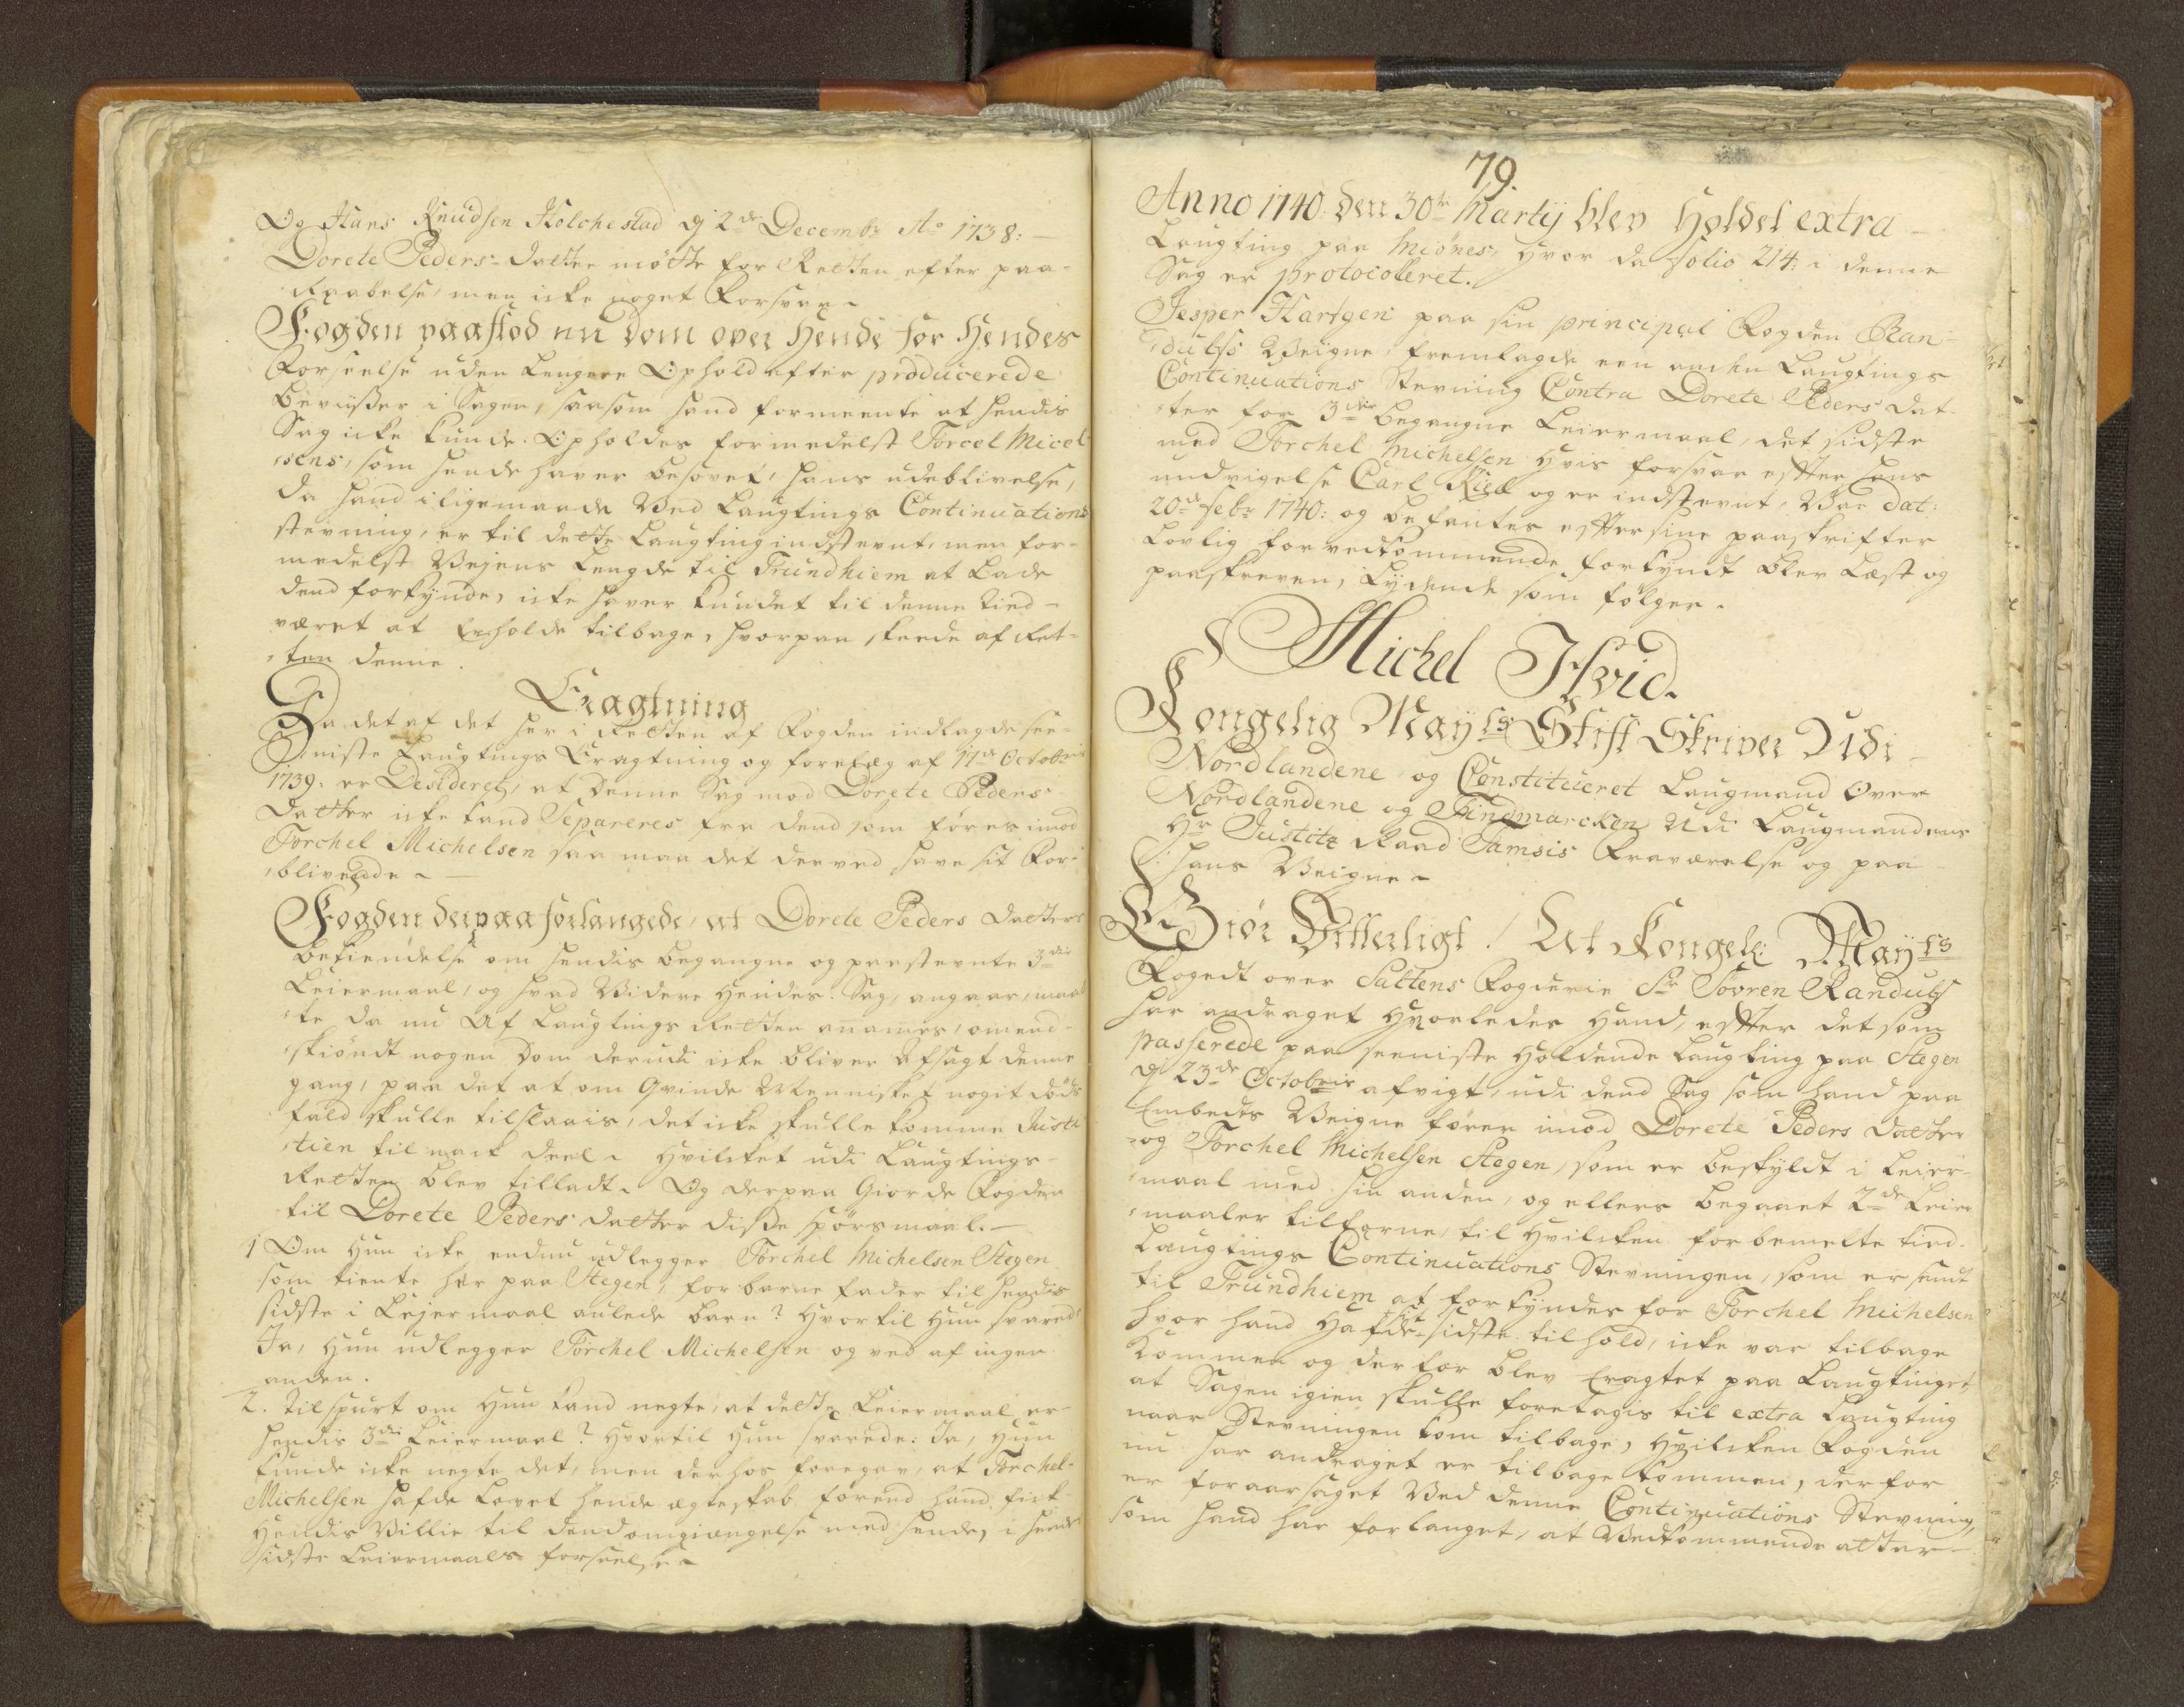 Og Hans Knudsen Kolchestad dj 2de Decembr Ao 1738:
Dorete Peders datter mötte for Retten efter paa-
Raabelse, men icke noget Forsvar.
Fogden paastod nu dom over Hende for Hendes
Forseelse uden Lengere Ophold efter producerede
Beviisser i Sagen, saasom hand formeente at hendis
Sag icke kunde Opholdes formedelst Torcel Micel-
sens, som hende haver besovet, hans udeblivelse,
da hand iligemaade Ved Laugtings Continuations
stevning, er til dette Laugting indstevnt, men for-
medelst Vejens Lengde til Trundhiem at Lade
dend forkynde, icke haver kundet til denne tied
været at Erholde tilbage, hvorpaa skeede af Ret-
ten denne.
Eragtning
Da det af det her i Retten af Fogden indlagde see-
niste Laugtings Eragtning og forelæg af 17de Octobris
1739: er Desideret, at denne Sag mod Dorete Peders
datter icke kand Separeres fra dend som föres imod
Torchel Michelsen saa maa det derved have sit For-
blivende.
Fogden derpaa forlangede, at Dorete Peders datters
bekiendelse om hendis begangne og paastevnte 3die
Leiermaal, og hvad Videre Hendes Sag, angaar, maat
te da nu Af Laugtings Retten anames, omend-
skiöndt nogen Dom derudi icke bliver Afsagt denne
gang, paa det at om Qvinde Mennisket nogit döds
fald skulle tilslaais, det icke skulle komme Justi
tien til nack deel. Hvilcket udi Laugtings-
Retten blev tilladt. Og derpaa Giorde Fogden
til Dorete Peders datter disse spörsmaal.
1 Om Hun icke endnu udlegger Torchel Michelsen Stegen
som tiente her paa Stegen, for barne fader til hendis
sidste i Lejermaal aulede barn? Hvortil Hun svarede
Ja, Hun udlegger Torchel Michelsen og ved af ingen
anden.
2. Tilspurt om Hun kand negte, at dette Leiermaal er
hendis 3die Leiermaal? Hvortil Hun svarede: Ja, Hun
kunde icke negte det, men derhos foregav, at Torchel
Michelsen hafde Lovet hende ægteskab förend hand fick
Hendis Villie til dend omgiængelse med hende, i hendes
sidste Leiermaals forseelse.
79.
Anno 1740: den 30te Martij blev Holdet extra
Laugting paa Miönes, Hvor da folio 214: i denne
Sag er protocoleret.
Jesper Hartgen paa sin principal Fogden Ran-
dulfs Veigne, fremlagde een anden Laugtings
Continuations Stevning Contra Dorete Peders dat-
ter for 3die begangne Leiermaal, det sidste
med Torchel Michelsen Hvis forsvar efter hans
undvigelse Carl Kiel og er indstevnt, Var dat:
20de Febr 1740: og befantes efter sine paaskrifter
Lovlig for vedkommende forkyndt blev Læst og
paaskreven, Lydende som fölger.
Michel Hvid.
Kongelig Mayts Stift Skriver Udi
Nordlandene og Constitueret Laugmand Over
Nordlandene og Findmarcken Udi Laugmandens
Hr Justitz Raad Tamsis Fraværelse og paa
hans Veigne.
Giör Vitterligt! At Kongel: Mayts
Fogedt over Saltens Fogderie Sr Sovren Randulf
har andraget Hvorledes Hand, efter det som
passerede paa seeniste Holdende Laugting paa Stegen
dj 23de Octobris afvigt, udi dend Sag som hand paa
Embedes Veigne förer imod Dorete Peders datter
og Torchel Michelsen Stegen, som er beskyldt i Leier-
maal med hin anden, og ellers begaaet 2de Leier
maaler tilforne, til Hvilcken forbemelte tied
Laugtings Continuations Stevningen, som er sendt
til Trundhiem at forkyndes for Torchel Michelsen
hvor hand Hafde sit sidste tilhold, icke var tilbage
Kommen og derfor blev Eragtet paa Laugtinget
at Sagen igien skulle foretagis til extra Laugting
naar Stevningen kom tilbage, Hvilcken Fogden
nu har andraget er tilbage kommen, derfor
er foraarsaget Ved denne Continuations Stevning,
som hand har forlanget, at Vedkommende atter